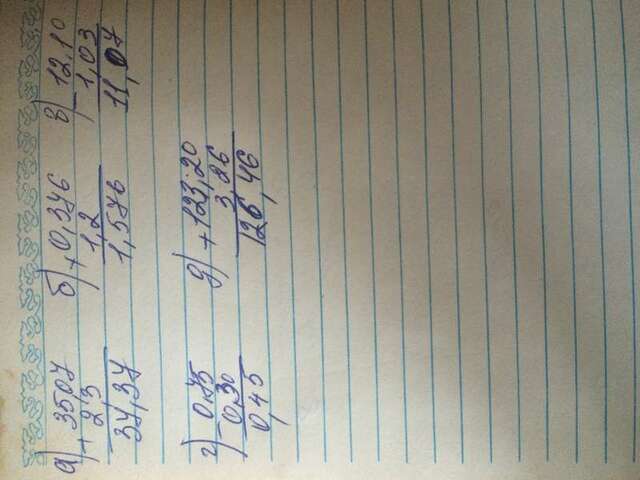 а) + 35,07 б) + 0,376 в) - 12,10
2,3 1,2 1,03
37,37 1,576 11,07
г) - 0,75 д) + 123,20
0,30 3,26
0,45 126,46